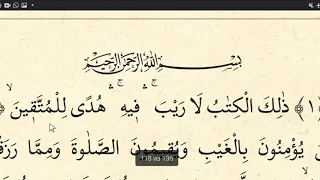 بِسْمِ اللهِ الرَّحْمٰنِ الرَّحِيْمِ
ذٰلِكَ الْكِتٰبُ لَا رَيْبَ ۛ فِيهِ ۛ هُدًى لِلْمُتَّقِينَ
يُؤْمِنُونَ بِالْغَيْبِ وَيُقِيمُونَ الصَّلٰوةَ وَمِمَّا
118 из 136